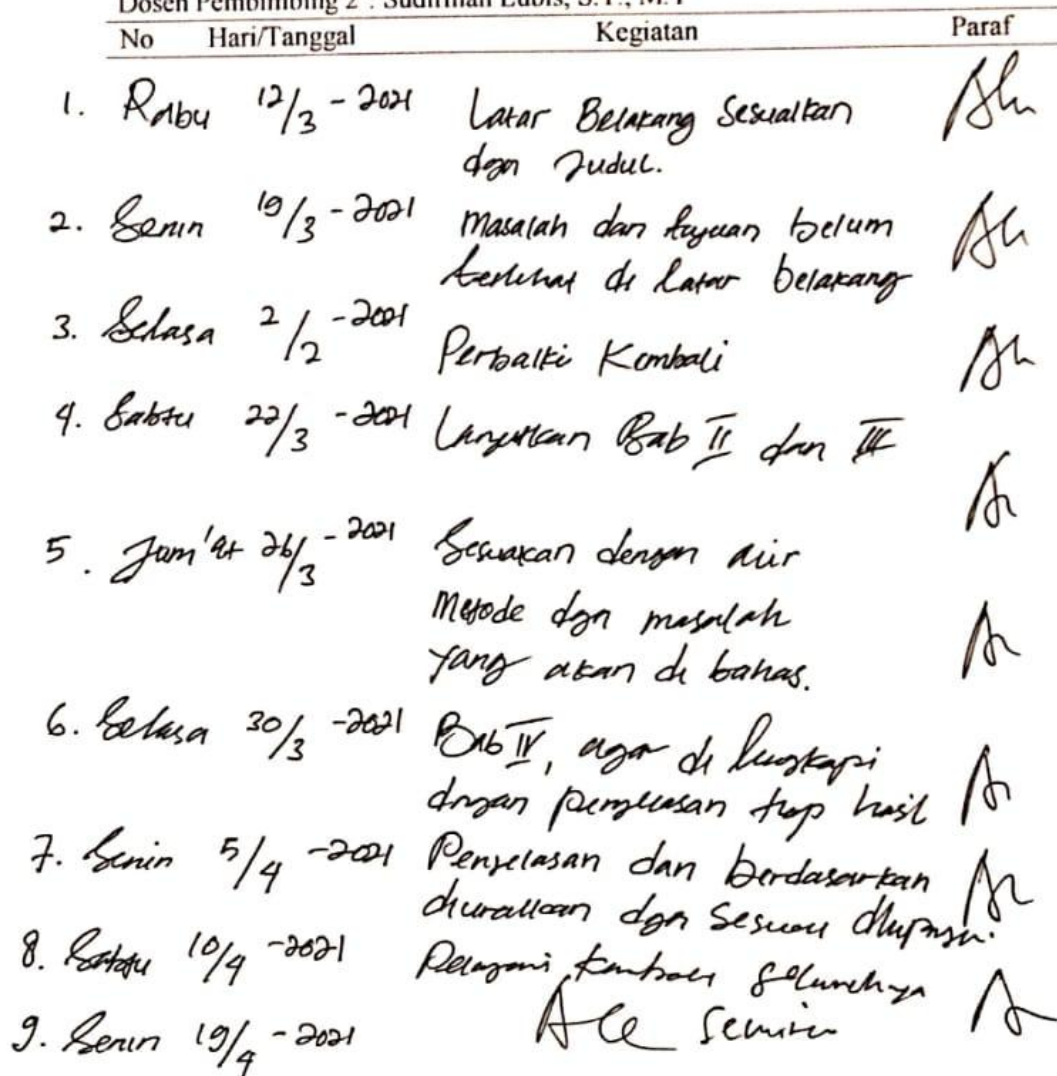 Dosen Pembimbing 2 : Sudirman Lubis, S.T., M.T
No Hari/Tanggal Kegiatan Paraf
1. Rabu 12/3 - 2021 Latar Belakang Sesuaikan
dgn Judul.
2. Senin 19/3 - 2021 Masalah dan tujuan belum
terlihat di latar belakang
3. Selasa 2/2 - 2021 Perbaiki Kembali
4. Sabtu 22/3 - 2021 Lanjutkan Bab II dan III
5. Jum'at 26/3 - 2021 Sesuaikan dengan alir
Metode dgn masalah
yang akan di bahas.
6. Selasa 30/3 - 2021 Bab IV, agar di lengkapi
dengan penjelasan tiap hasil
7. Senin 5/4 - 2021 Penjelasan dan berdasarkan
diuraikan dgn Sesuai
8. Sabtu 10/4 - 2021 Pelajari kembali seluruhnya
9. Senin 19/4 - 2021 Acc Seminar